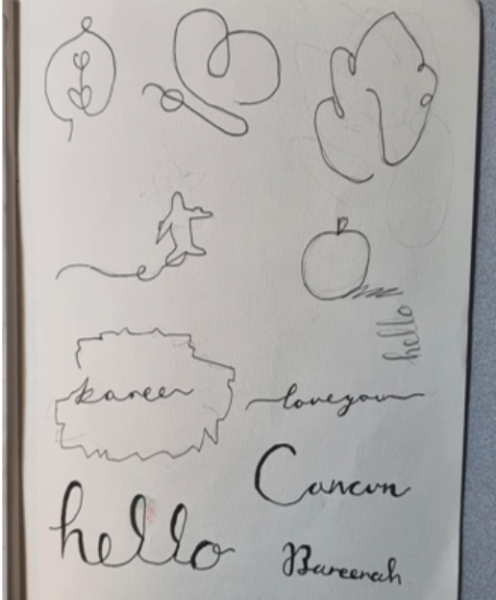 hello
kareer
loveyou
Cancun
hello
Bareerah